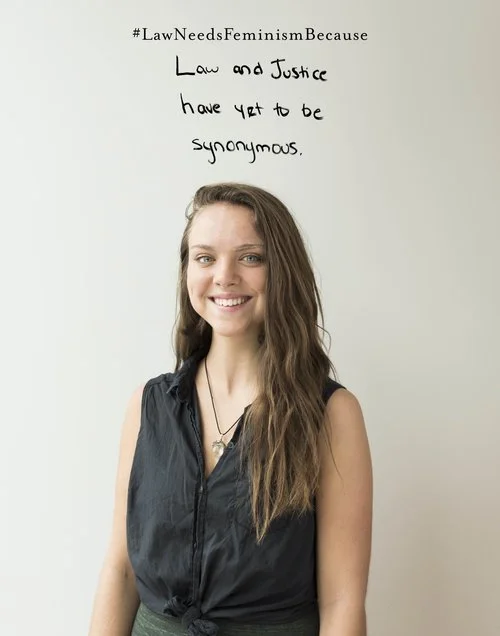 #LawNeedsFeminismBecause
Law and Justice
have yet to be
synonymous.